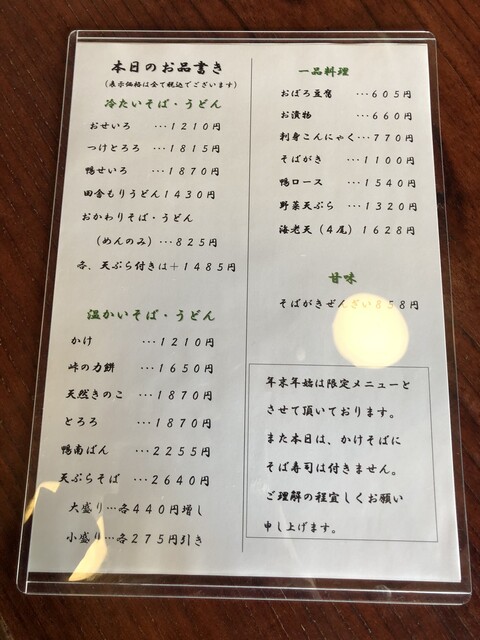 本日のお品書き
(表示価格は全て税込でございます)
冷たいそば・うどん
おせいろ ・・・1210円
つけとろろ ・・・1815円
鴨せいろ ・・・1870円
田舎もりうどん1430円
おかわりそば・うどん
(めんのみ)・・・825円
各、天ぷら付きは+1485円
温かいそば・うどん
かけ ・・・1210円
峠の力餅 ・・・1650円
天然きのこ ・・・1870円
とろろ ・・・1870円
鴨南ばん ・・・2255円
天ぷらそば ・・・2640円
大盛り・・・各440円増し
小盛り・・・各275円引き
一品料理
おぼろ豆腐 ・・・605円
お漬物 ・・・660円
刺身こんにゃく・・・770円
そばがき ・・・1100円
鴨ロース ・・・1540円
野菜天ぷら ・・・1320円
海老天(4尾) 1628円
甘味
そばがきぜんざい858円
年末年始は限定メニューと
させて頂いております。
また本日は、かけそばに
そば寿司は付きません。
ご理解の程宜しくお願い
申し上げます。